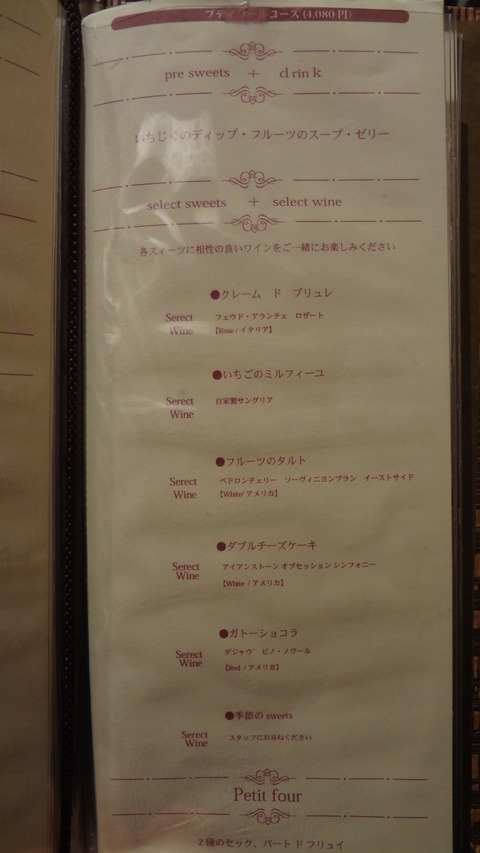 プティフールコース (4,080 円)
pre sweets + drink
いちじくのディップ・フルーツのスープ・ゼリー
select sweets + select wine
各スィーツに相性の良いワインをご一緒にお楽しみください
●クレーム ド ブリュレ
Serect Wine フェウド・アランチェ ロザート
【Rose / イタリア】
●いちごのミルフィーユ
Serect Wine 自家製サングリア
●フルーツのタルト
Serect Wine ペドロンチェリー ソーヴィニヨンブラン イーストサイド
【White/ アメリカ】
●ダブルチーズケーキ
Serect Wine アイアンストーン オブセッション シンフォニー
【White / アメリカ】
●ガトーショコラ
Serect Wine デジャヴ' ピノ・ノワール
【Red / アメリカ】
●季節の sweets
Serect Wine スタッフにお尋ねください
Petit four
2種のセック、パート ド フリュイ